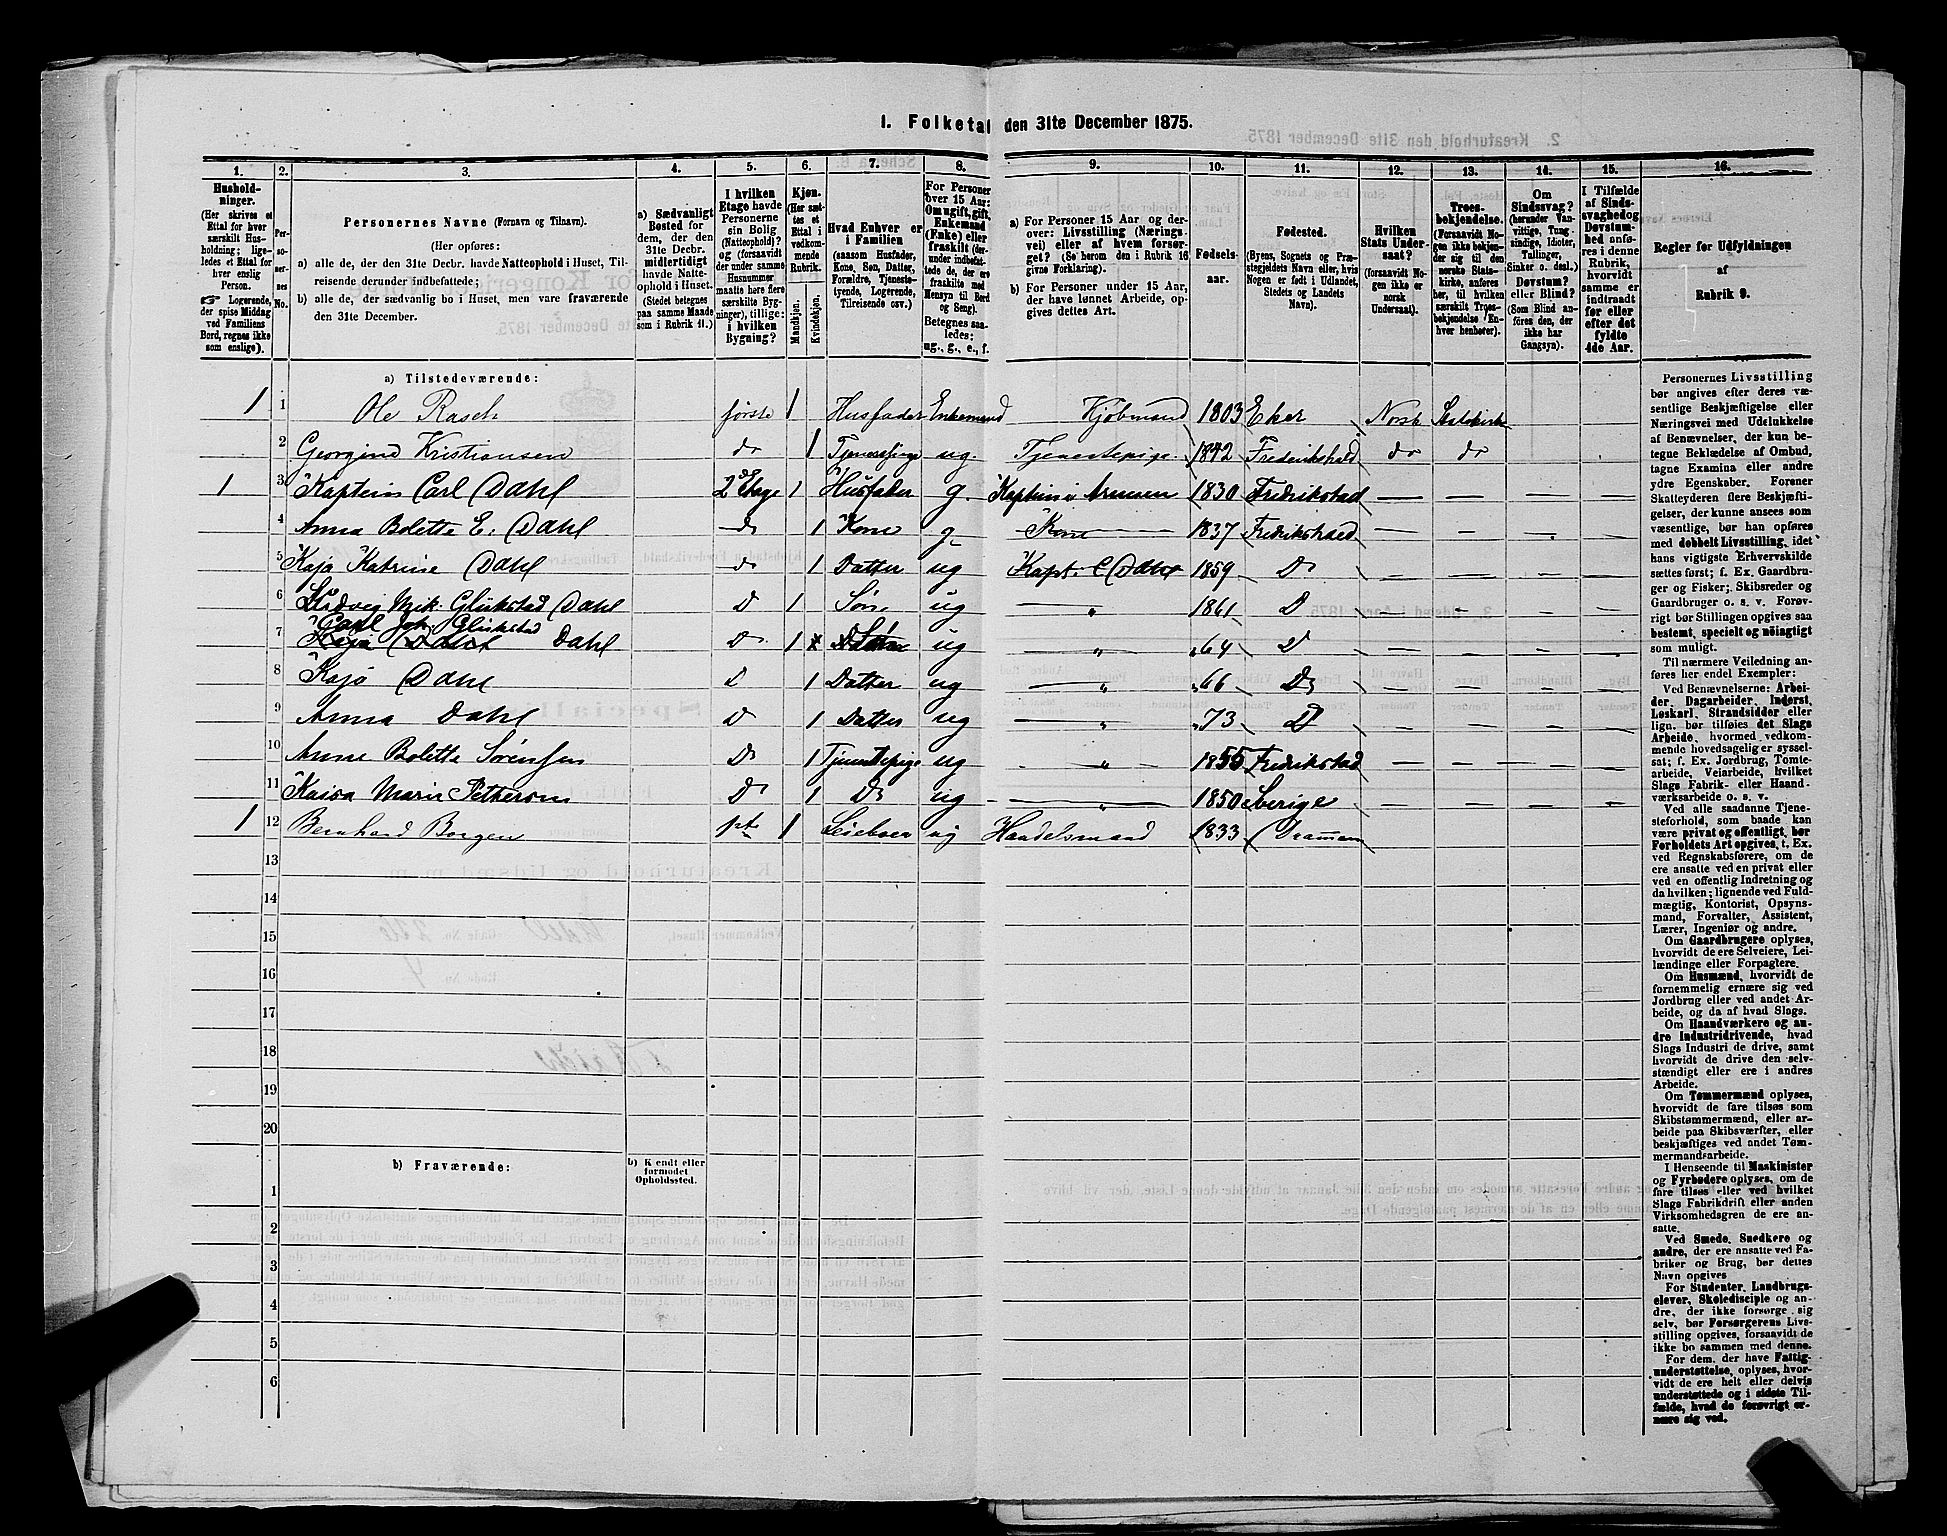 1. Folketal den 31te December 1875.
1. 2. 3. 4. 5. 6. 7. 8. 9. 10. 11. 12. 13. 14. 15. 16.
Husholdninger.
(Her skrives et Ettal for hver særskilt Husholdning; ligeledes et Ettal for hver enslig Person.
☞ Logerende, der spise Middag ved Familiens Bord, regnes ikke som enslige).
Personernes No.
Personernes Navne (Fornavn og Tilnavn).
(Her opføres:
a) alle de, der den 31te Decbr. havde Natteophold i Huset, Tilreisende derunder indbefattede;
b) alle de, der sædvanlig bo i Huset, men vare fraværende den 31te December.
a) Sædvanligt Bosted for dem, der den 31te Decbr. midlertidigt havde Natteophold i Huset. (Stedet betegnes paa samme Maade som i Rubrik 11.)
I hvilken Etage havde Personerne sin Bolig (Natteophold)? og (forsaavidt der under samme Husnummer maatte høre flere særskilte Bygninger), tillige: i hvilken Bygning?
Kjøn. (Her sættes et Ettal i vedkommende Rubrik.
Mandkjøn. Kvindekjøn.
Hvad Enhver er i Familien
(saasom Husfader, Kone, Søn, Datter, Forældre, Tjenestetyende, Logerende, Tilreisende osv.)
For Personer over 15 Aar: Om ugift, gift, Enkemand (Enke) eller fraskilt (derunder indbefattede de, der ere fraskilte med Hensyn til Bord og Seng).
Betegnes saaledes: ug., g., e., f.
a) For Personer 15 Aar og derover: Livsstilling (Næringsvei) eller af hvem forsørget? (Se herom den i Rubrik 16 givne Forklaring).
b) For Personer under 15 Aar, der have lønnet Arbeide, opgives dettes Art.
Fødselsaar.
Fødested.
(Byens, Sognets og Præstegjeldets Navn eller, hvis Nogen er født i Udlandet, Stedets og Landets Navn).
Hvilken Stats Undersaat?
(forsaavidt Nogen ikke er norsk Undersaat).
Troesbekjendelse.
(Forsaavidt Nogen ikke bekjender sig til den norske Statskirke, anføres her, til hvilken særskilt Troesbekjendelse Enhver henhører).
Om Sindssvag? (herunder Vanvittige, Tungsindige, Idioter, Tallinger, Sinker o. desl.) Døvstum? eller Blind? (Som Blind anføres den, der ikke har Gangsyn).
I Tilfælde af Sindssvaghed og Døvstumhed anføres i denne Rubrik, hvorvidt samme er indtraadt før eller efter det fyldte 4de Aar.
Regler for Udfyldningen af Rubrik 9.
a) Tilstedeværende:
1 1 Ole Rasch første 1 Husfader Enkemand Kjøbmand 1803 Eker Norsk Statskirk
2 Georgine Kristiansen do 1 Tjenestepige ug. Tjenestepige 1842 Frederikshald do do
1 3 Kaptein Carl Dahl 2 Etage 1 Husfader g. Kaptein i Armeen 1830 Fredrikstad — —
4 Anna Bolette E. Dahl do 1 Kone g. Kone 1837 Fredrikshald — —
5 Kaja Katrine Dahl do 1 Datter ug Kapt. C Dahl 1859 Do — — — —
6 Ludvig Mik. Glükstad Dahl D 1 Søn ug — „ 1861 D — — — —
Carl Joh. Glükstad
7 Kaja Dahl Dahl Do 1 Datter Søn ug — „ „64 D — — — —
8 Kaja Dahl D 1 Datter ug — „ „66 Do — — — —
9 Anna Dahl D 1 Datter ug — „ „73 D — — — —
10 Anne Bolette Sørensen Do 1 Tjenestepige ug — „ 1855 Fredrikstad — — — —
11 Kaisa Marie Pettersen Do 1 Do ug — „ 1850 Sverige — — — —
1 12 Bernhard Borgen 1st 1 Leieboer ug Handelsmand 1833 Dramen
13
14
15
16
17
18
19
20
b) Fraværende:
b) Kjendt eller formodet Opholdssted.
1
2
3
4
5
6
Personernes Livsstilling
bør angives efter deres væ-
sentlige Beskjæftigelse eller
Næringsvei med Udelukkelse
af Benævnelser, der kun be-
tegne Beklædelse af Ombud,
tagne Examina eller andre
ydre Egenskaber. Forener
Skatteyderen flere Beskjæfti-
gelser, der kunne ansees som
væsentlige, bør han opføres
med dobbelt Livsstilling, idet
hans vigtigste Erhvervskilde
sættes først; f. Ex. Gaardbru-
ger og Fisker; Skibsreder og
Gaardbruger o. s. v. Forøv-
rigt bør Stillingen opgives saa
bestemt, specielt og nöiagtigt
som muligt.
Til nærmere Veiledning an-
føres her endel Exempler:
Ved Benævnelserne: Arbei-
der, Dagarbeider, Inderst,
Løskarl, Strandsidder eller
lign. bør tilføies det Slags
Arbeide, hvormed vedkom-
mende hovedsagelig er syssel-
sat; f. Ex. Jordbrug, Tomte-
arbeide, Veiarbeide, hvilket
Slags Fabrik- eller Haand-
værksarbeide o. s. v.
Ved alle saadanne Tjene-
steforhold, som baade kan
være privat og offentligt, bør
Forholdets Art opgives, t. Ex.
ved Regnskabsførere, om de
ere ansatte ved en privat eller
ved en offentlig Indretning og
da hvilken; lignende ved Fuld-
mægtig, Kontorist, Opsyns-
mand, Forvalter, Assistent,
Lærer, Ingeniør og andre.
Om Gaardbrugere oplyses,
hvorvidt de ere Selveiere, Lei-
lændinge eller Forpagtere.
Om Husmænd, hvorvidt de
fornemmelig ernære sig ved
Jordbrug eller ved andet Ar-
beide, og da af hvad Slags.
Om Haandværkere og an-
dre Industridrivende, hvad
Slags Industri de drive, samt
hvorvidt de drive den selv-
stændigt eller ere i andres
Arbeide.
Om Tømmermænd oplyses,
hvorvidt de fare tilsøs som
Skibstømmermænd, eller ar-
beide paa Skibsværfter, eller
beskjæftiges ved andet Tøm-
mermandsarbeide.
I Henseende til Maskinister
og Fyrbødere oplyses, om de
fare tilsøs eller ved hvilket
Slags Fabrikdrift eller anden
Virksomhedsgren de ere an-
satte.
Ved Smede, Snedkere og
andre, der ere ansatte ved Fa-
briker og Brug, bør dettes
Navn opgives
For Studenter, Landbrugs-
elever, Skoledisciple og an-
dre, der ikke forsørge sig
selv, bør Forsørgerens Livs-
stilling opgives, forsaavidt de
ikke bo sammen med denne.
For dem, der have Fattig-
understøttelse, oplyses, hvor-
vidt de ere helt eller delvis
understøttede og i sidste Til-
fælde, hvad de forøvrigt er-
nære sig ved.